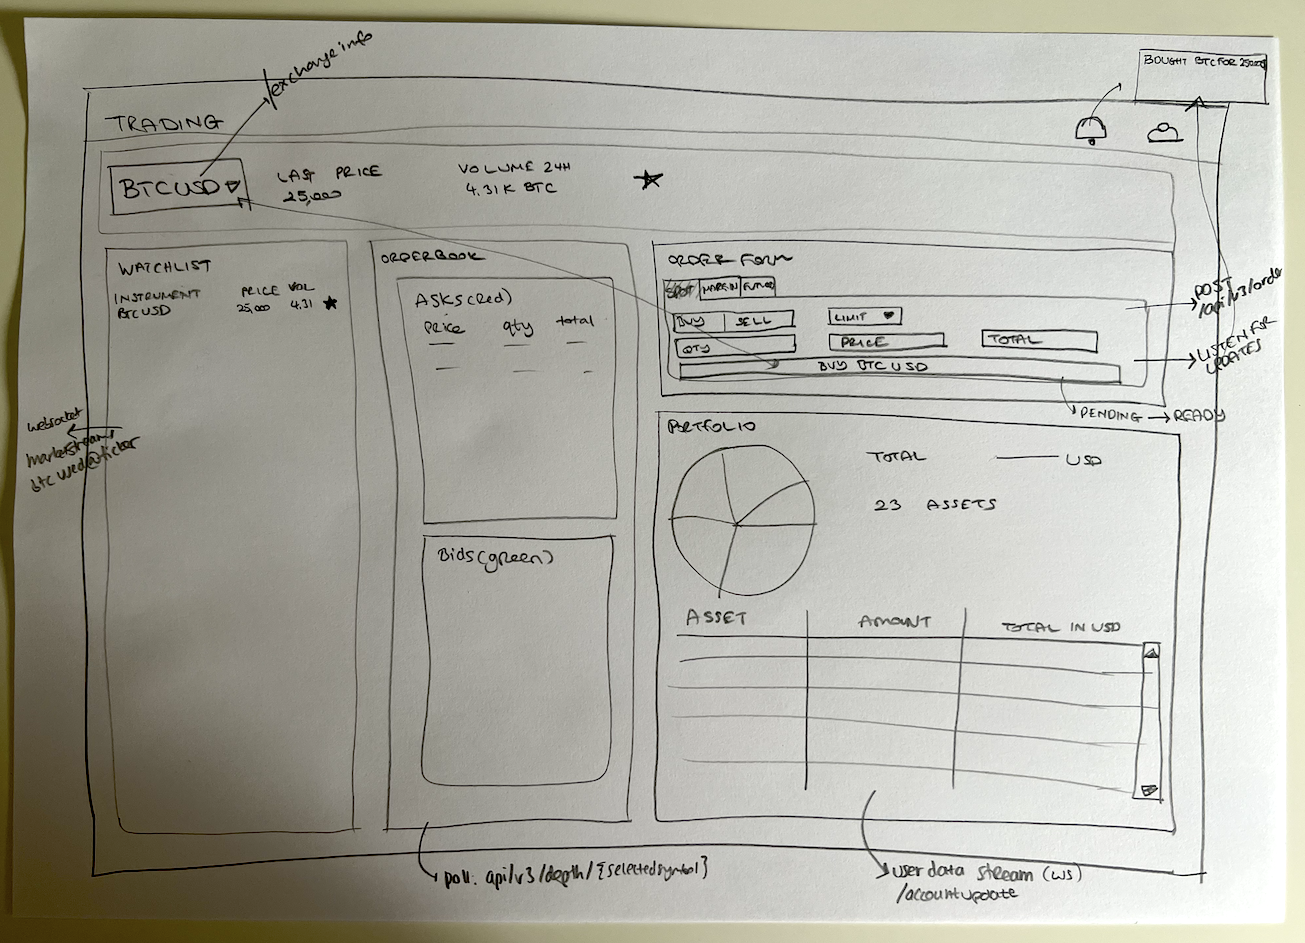 /exchangeinfo
BOUGHT BTC FOR 25000$
TRADING
BTCUSD
LAST PRICE
25,000
VOLUME 24H
4.31K BTC
WATCHLIST
INSTRUMENT PRICE VOL
BTCUSD 25,000 4.31
websocket
marketstream,
@ticker
ORDERBOOK
ASKS(red)
price qty total
Bids(green)
poll. api/v3/depth/{selectedsymbol}
ORDER FORM
SPOT MARGIN FUTURES
BUY SELL LIMIT
QTY PRICE TOTAL
BUY BTCUSD
POST
/api/v3/order
LISTEN FOR
UPDATES
PENDING → READY
PORTFOLIO
TOTAL USD
23 ASSETS
ASSET AMOUNT TOTAL IN USD
user data stream (ws)
/accountupdate